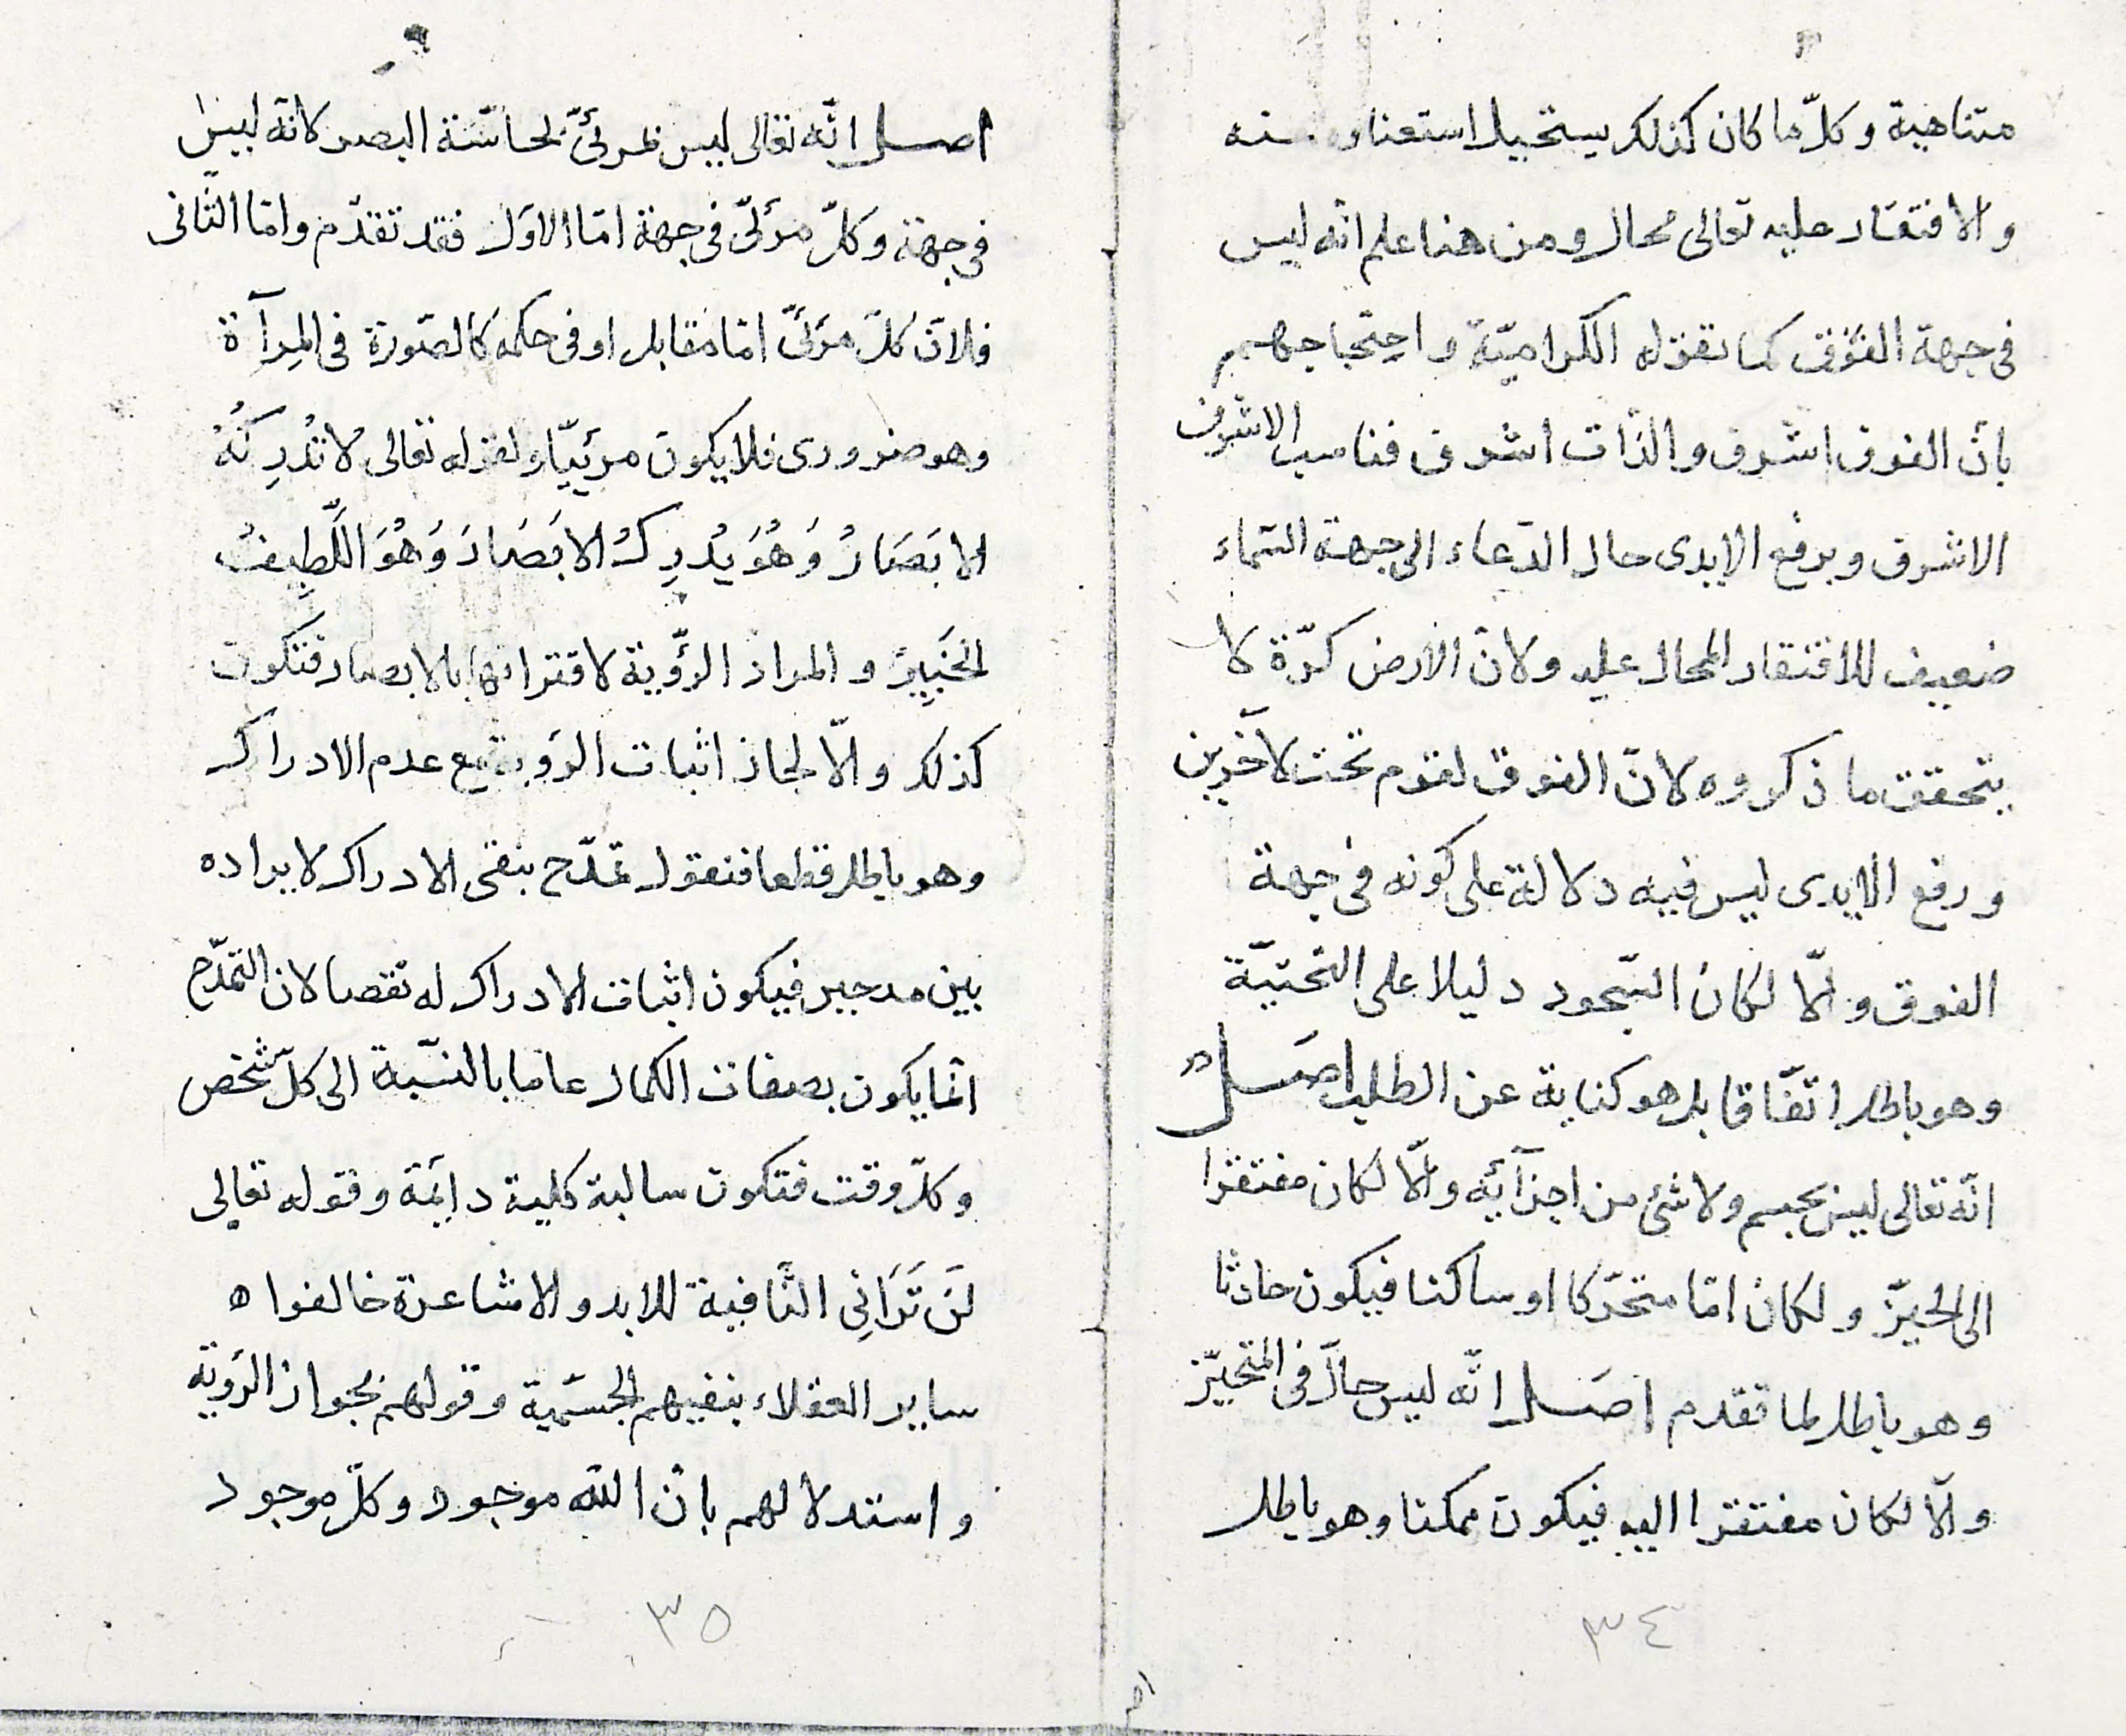 متناهية وكلّ ما كان كذلك يستحيل استغناوه عنه
والافتقار عليه تعالى محال ومن هنا علم انّه ليس
فى جهة الفوق كما تقوله الكراميّة واحتجاجهم
بانّ الفوق اشرف والذّات اشرف فناسب الاشرف
الاشرف وبرفع الايدى حال الدّعاء الى جهة السّماء
ضعيف للافتقار المحال عليه ولانّ الارض كرّة لا
يتحقق ما ذكروه لانّ الفوق لقوم تحت لآخرين
ورفع الايدى ليس فيه دلالة على كونه فى جهة
الفوق والّا لكان السّجود دليلا على التّحتيّة
وهو باطل اتّفاقا بل هو كناية عن الطلب اصل
انّه تعالى ليس بجسم ولا شئ من اجزآئه والّا لكان مفتقرا
الى الحيّز ولكان امّا متحرّكا او ساكنا فيكون حادثا
وهو باطل لما تقدم اصل انّه ليس حالّا فى المتحيّز
والّا لكان مفتقرا اليه فيكون ممكنا وهو باطل
٣٤
اصل انّه تعالى ليس بمرئىّ بحاسّة البصر لانّه ليس
فى جهة وكلّ مرئىّ فى جهة امّا الاوّل فقد تقدّم وامّا الثّانى
فلانّ كلّ مرئىّ امّا مقابل او فى حكمه كالصّورة فى المِرآة
وهو ضرورى فلا يكون مرئيّا ولقوله تعالى لا تُدْرِكُهُ
الابَصَارُ وَهُوَ يُدْرِكُ الابَصَارَ وَهُوَ اللَّطِيفُ
الخَبِيرُ والمراد الرّؤية لاقترانها بالابصار فتكون
كذلك والّا لجاز اثبات الرّوية مع عدم الادراك
وهو باطل قطعا فنقول تمدّح بنفى الادراك لايراده
بين مدحين فيكون اثبات الادراك له نقصا لان التّمدّح
انّما يكون بصفات الكمال عاما بالنّسبة الى كلّ شخص
وكلّ وقت فتكون سالبة كلية دائمة وقوله تعالى
لَن تَرَانِى النّافية للابد والاشاعرة خالفوا
ساير العقلاء بنفيهم الجسميّة وقولهم بجواز الرّوية
واستدلالهم بان اللّه موجود وكلّ موجود
٣٥